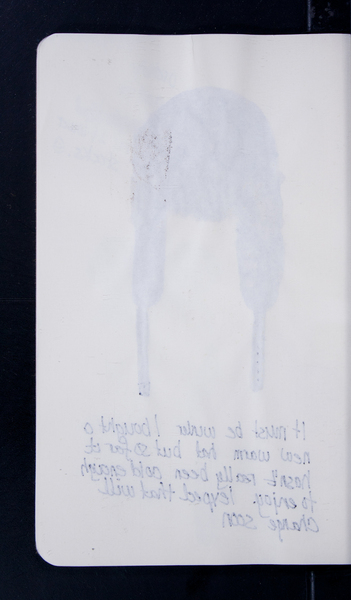 It must be winter I bought a
new warm hat but so far it
hasn't really been cold enough
to enjoy. I expect that will
change soon